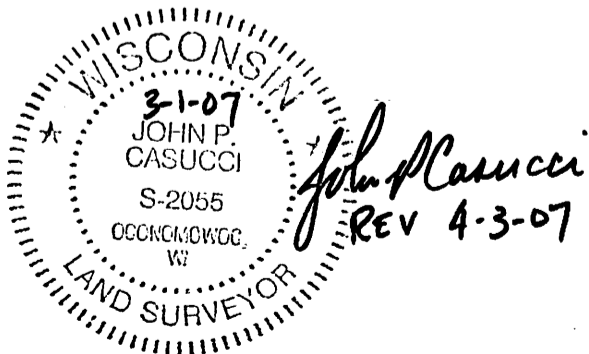 WISCONSIN
3-1-07
JOHN P.
CASUCCI
S-2055
OCONOMOWOC,
WI
LAND SURVEYOR
John P Casucci
REV 4-3-07